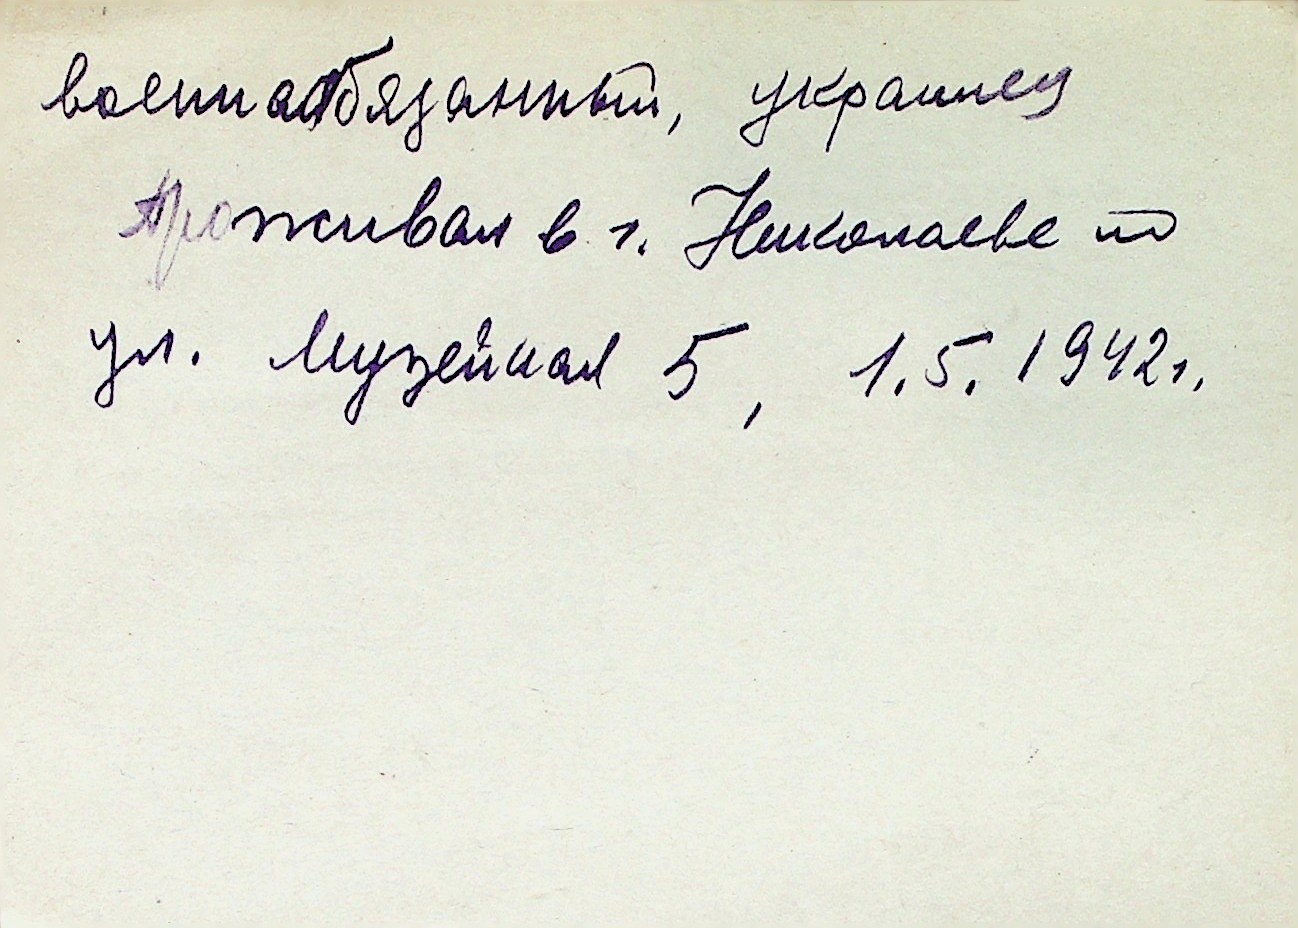 военнообязанный, украинец
проживал в г. Николаеве по
ул. Музейная 5, 1.5.1942г.